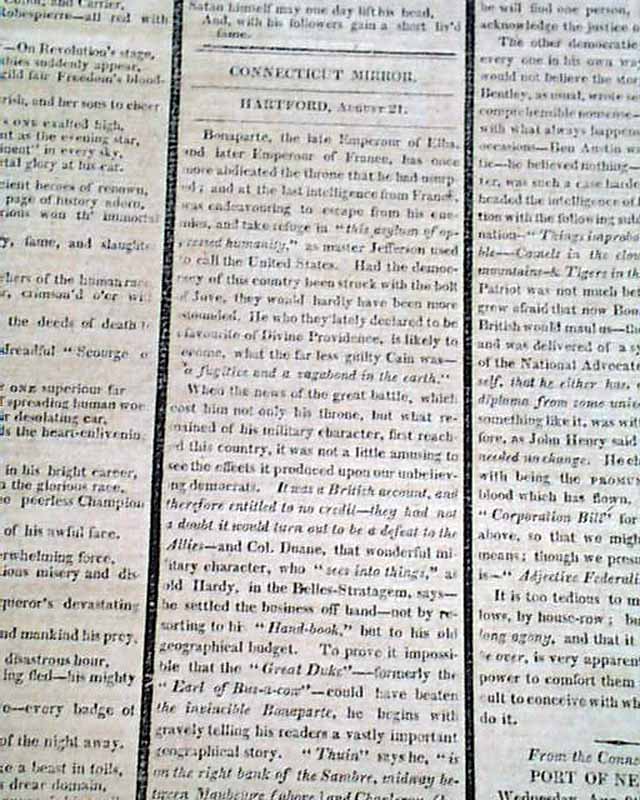 Conn, and Carrier,
Robespierre—all red with
—On Revolution's stage,
suddenly appear,
gild fair Freedom's blood-
rish, and her sons to cheer
ONE exalted high,
nt as the evening star,
inent" in every sky,
etal glory at his car.
cient heroes of renown,
page of history adorn,
rious won th' immortal
y, fame, and slaughte
hers of the human race
s, crimson'd o'er wi
the deeds of death
dreadful "Scourge o
r ONE superiour far
f spreading human woe
ir desolating car,
ds the heart-enlivenin
in his bright career,
n the glorious race,
ee peerless Champion
of his awful face,
erwhelming force,
ious misery and dis-
queror's devastating
nd mankind his prey,
disastrous hour,
ling fled—his mighty
o—every badge of
of the night away.
e a beast in toils,
s drear domain,
Satan himself may one day lift his head,
And, with his followers gain a short liv'd
fame.
CONNECTICUT MIRROR.
HARTFORD, AUGUST 21.
Bonaparte, the late Emperour of Elba,
and later Emperour of France, has once
more abdicated the throne that he had usurp-
ed; and at the last intelligence from France,
was endeavouring to escape from his ene-
mies, and take refuge in "this asylum of op-
pressed humanity," as master Jefferson used
to call the United States. Had the democ-
racy of this country been struck with the bolt
of Jove, they would hardly have been more
stounded. He who they lately declared to be
a favourite of Divine Providence, is likely to
become, what the far less guilty Cain was—
"a fugitive and a vagabond in the earth."
When the news of the great battle, which
cost him not only his throne, but what re-
mained of his military character, first reach-
ed this country, it was not a little amusing to
see the effects it produced upon our unbeliev-
ing democrats. It was a British account, and
therefore entitled to no credit—they had not
a doubt it would turn out to be a defeat to the
Allies—and Col. Duane, that wonderful mi-
litary character, who "sees into things," as
old Hardy, in the Belles-Stratagem, says—
he settled the business off hand—not by re-
sorting to his "Hand-book," but to his old
geographical budget. To prove it impossi-
ble that the "Great Duke"—formerly the
"Earl of Bus-a-cow"—could have beaten
the invincible Bonaparte, he begins with
gravely telling his readers a vastly important
geographical story. "Thuin" says he, "is
on the right bank of the Sambre, midway be-
tween Maubeuge and Charleroy.
he will find one person,
acknowledge the justice o
The other democratic
every one in his own way
would not believe the stor
Bentley, as usual, wrote so
comprehensible nonsense—
with what always happen
occasions—Ben Austin wa
tic—he believed nothing—
ter, was such a case hard
headed the intelligence of
tion with the following sub
nation—"Things improba
ble—Camels in the clou
mountains—& Tigers in th
Patriot was not much bet
grew afraid that now Bon
British would maul us—tha
and was delivered of a sy
of the National Advocate
self, that he either has,
diploma from some unive
something like it, was wit
fore, as John Henry said
needed no change. He cl
with being the
blood which has flown,
"Corporation Bill" for
above, so that we migh
means; though we presu
is—"Adjective Federali
It is too tedious to m
lows, by house-row; bu
long agony, and that it
be over, is very apparen
power to comfort them
cult to conceive with wh
do it.
From the Connec
PORT OF NE
Wednesday,